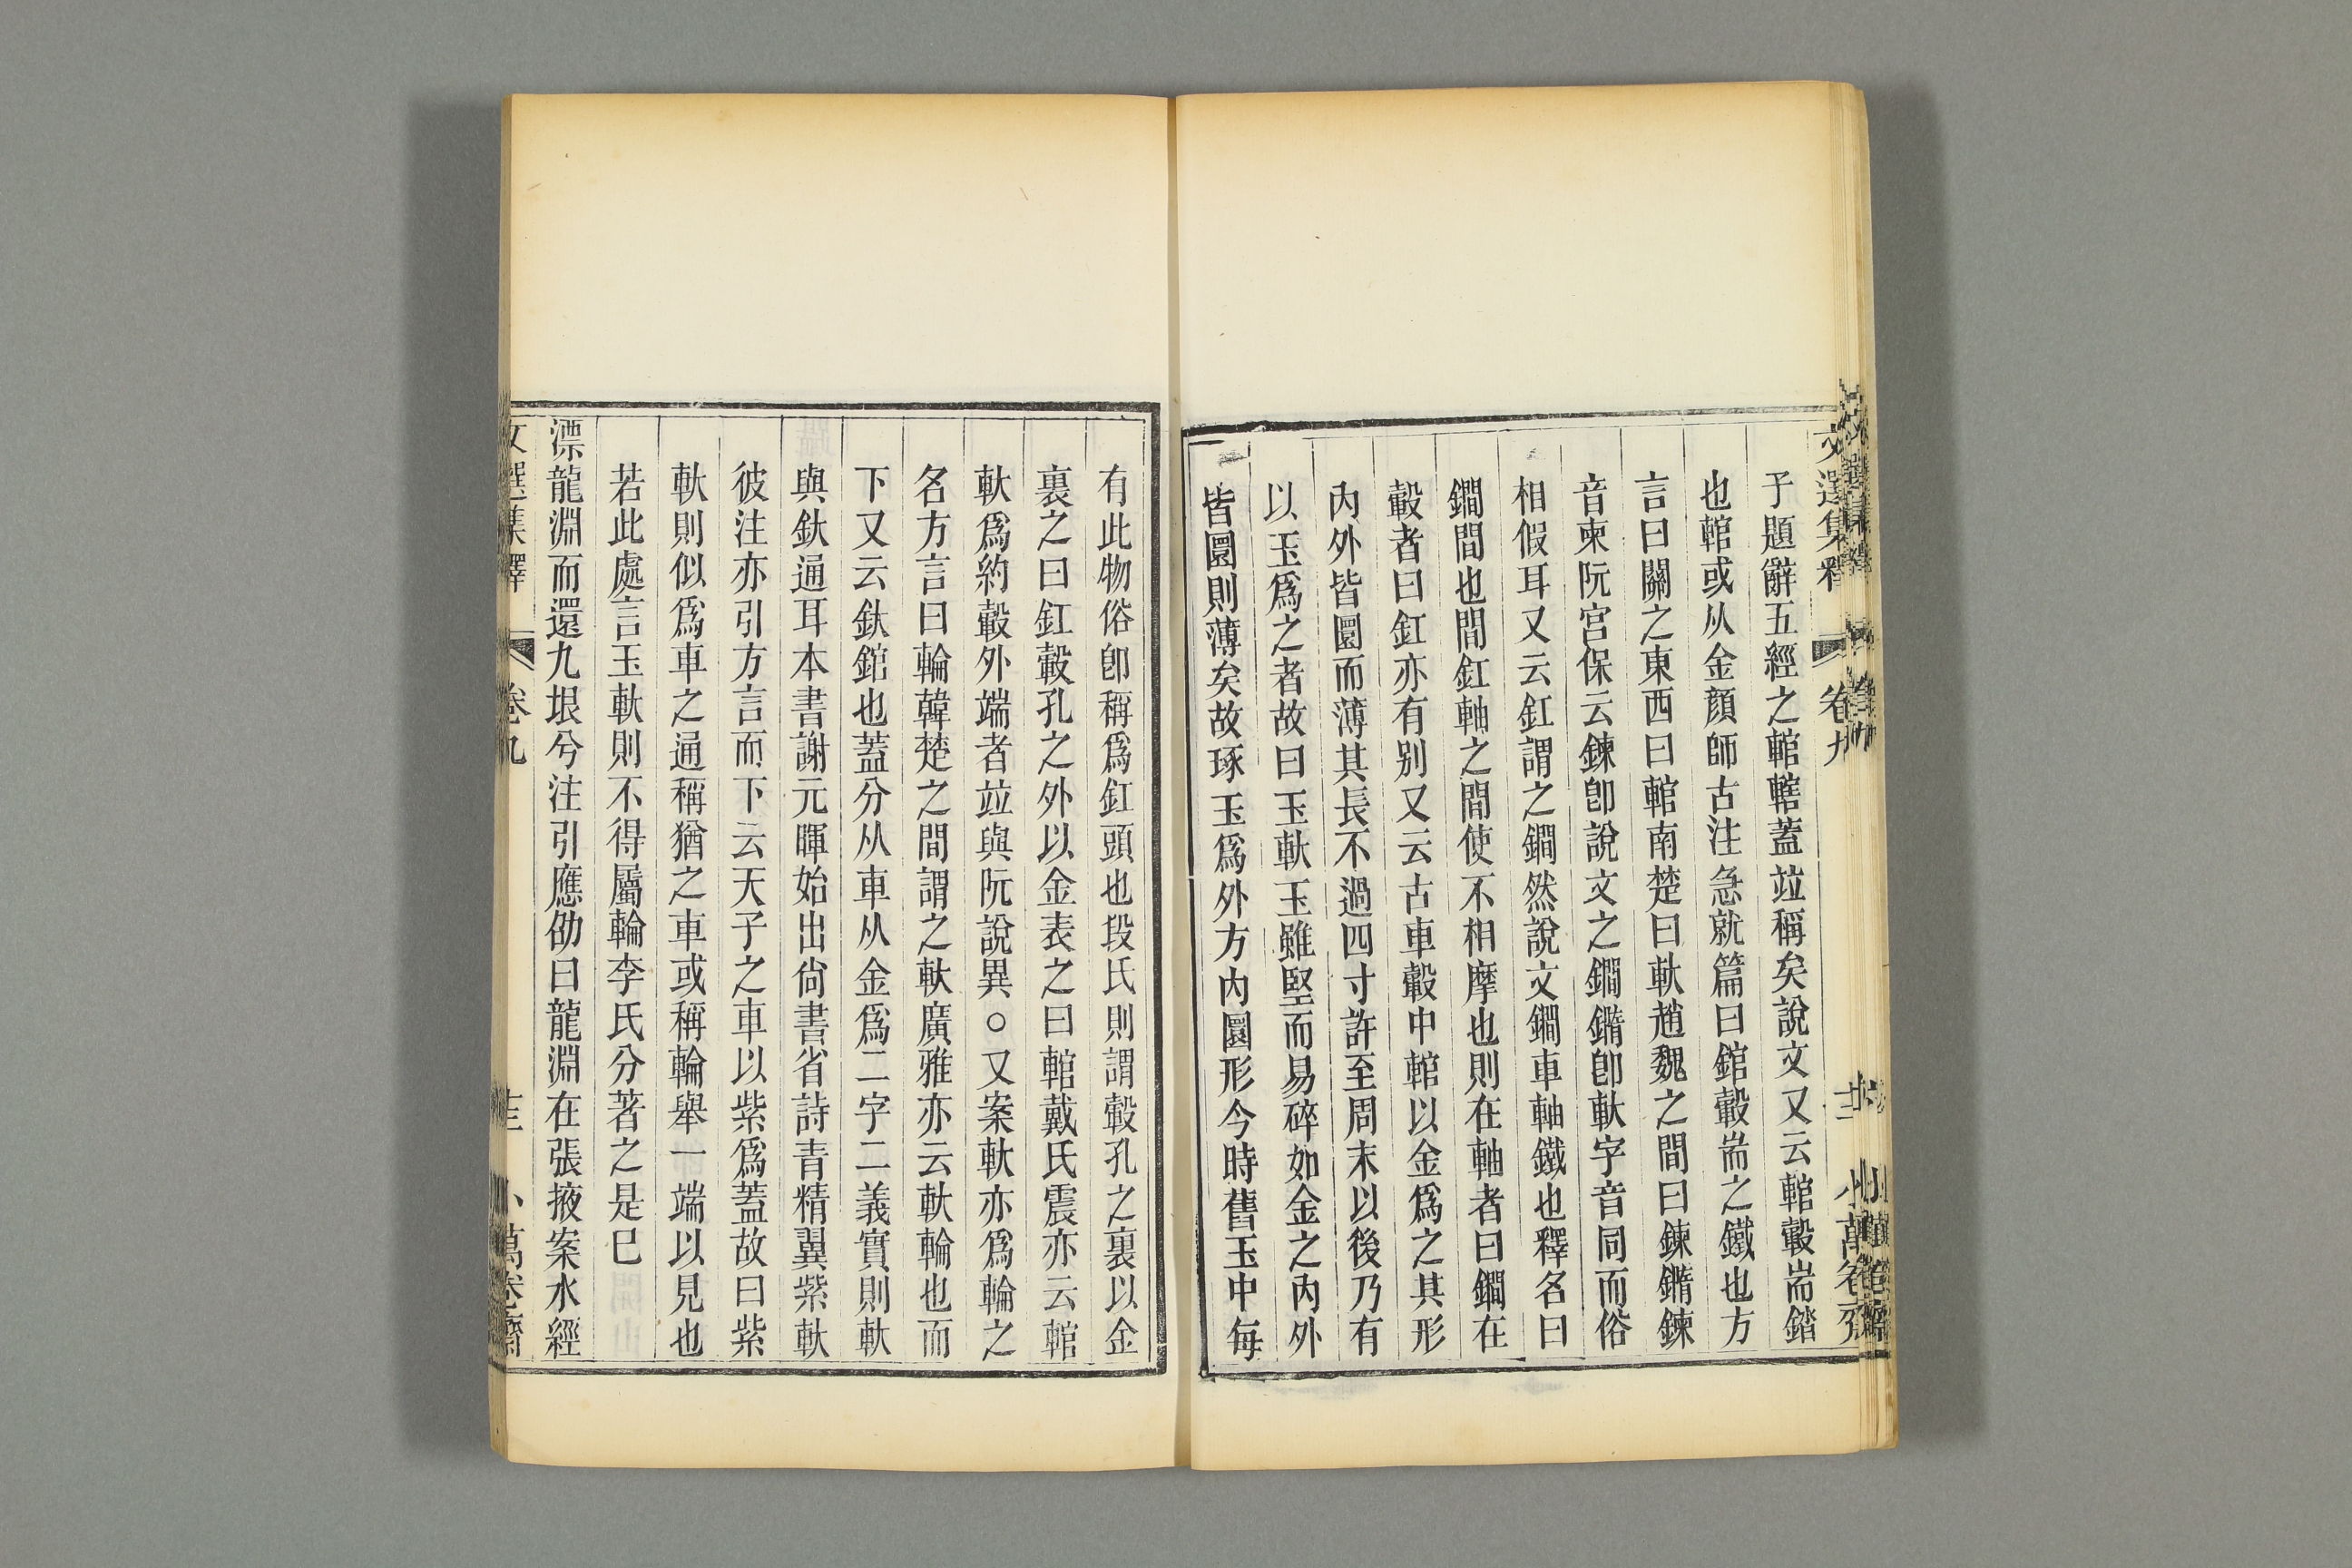 子題辭五經之輨轄蓋竝稱矣說文又云輨轂耑錔
也輨或从金顏師古注急就篇曰錧轂耑之鐵也方
言曰關之東西曰輨南楚曰軑趙魏之間曰鍊鐕鍊
音柬阮宫保云鍊卽說文之鐗鐕卽軑字音同而俗
相假耳又云釭謂之鐗然說文鐗車軸鐵也釋名曰
鐗間也間釭軸之間使不相摩也則在軸者曰鐗在
轂者曰釭亦有别又云古車轂中輨以金爲之其形
内外皆圜而薄其長不過四寸許至周末以後乃有
以玉爲之者故曰玉軑玉雖堅而易碎如金之内外
皆圜則薄矣故琢玉爲外方内圜形今時舊玉中每
有此物俗卽稱爲釭頭也段氏則謂轂孔之裏以金
裏之曰釭轂孔之外以金表之曰輨戴氏震亦云輨
軑爲約轂外端者竝與阮說異○又案軑亦爲輪之
名方言曰輪韓楚之間謂之軑廣雅亦云軑輪也而
下又云釱錧也蓋分从車从金爲二字二義實則軑
與釱通耳本書謝元暉始出尙書省詩青精翼紫軑
彼注亦引方言而下云天子之車以紫爲蓋故曰紫
軑則似爲車之通稱猶之車或稱輪舉一端以見也
若此處言玉軑則不得屬輪李氏分著之是已
漂龍淵而還九垠兮注引應劭曰龍淵在張掖案水經
文選集釋 卷九 小萬卷齋